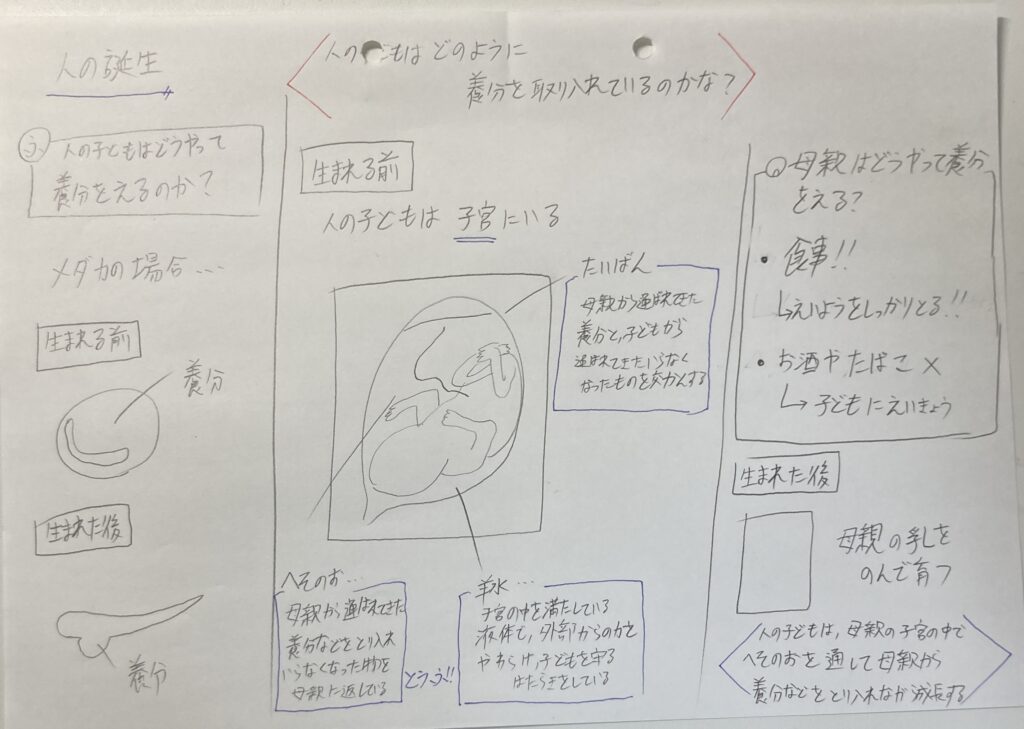 人の誕生
ふ 人の子どもはどうやって
養分をえるのか?
メダカの場合…
生まれる前
養分
生まれた後
養分
人の子どもは どのように
養分を取り入れているのかな?
生まれる前
人の子どもは 子宮にいる
たいばん
母親から運ばれてきた
養分と,子どもから
運ばれてきたいらなく
なったものを交かんする
へそのお…
母親から運ばれてきた
養分などをとり入れ
いらなくなった物を
母親に返している
羊水…
子宮の中を満たしている
液体で,外部からの力を
やわらげ,子どもを守る
はたらきをしている
母親はどうやって養分
をえる?
・食事!!
↳えいようをしっかりとる!!
・お酒やたばこ×
↳子どもにえいきょう
生まれた後
母親の乳を
のんで育つ
人の子どもは,母親の子宮の中で
へそのおを通して母親から
養分などをとり入れなが成長する